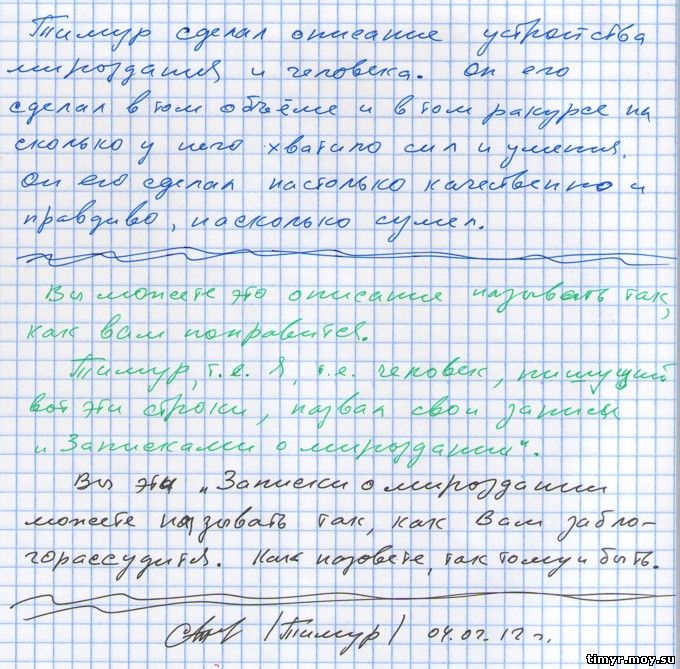 Тимур сделал описание устройства
мироздания и человека. Он его
сделал в том объёме и в том ракурсе на
сколько у него хватило сил и умения.
Он его сделал настолько качественно и
правдиво, насколько сумел.
Вы можете это описание называть так,
как вам понравится.
Тимур, т.е. я, т.е. человек, пишущий
вот эти строки, назвал свои записи
„Записками о мироздании“.
Вы эти „Записки о мироздании
можете называть так, как Вам забло-
горассудится. Как назовете, так тому и быть.
/Тимур/ 04.02.12 г.
timyr.moy.su